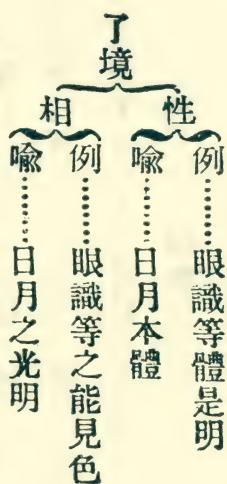 了境
性
例………眼識等體是明
喩………日月本體
相
例………眼識等之能見色
喩………日月之光明